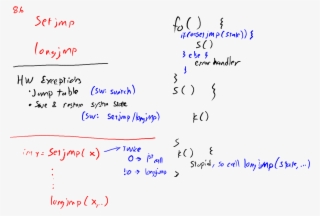 Setjmp
longjmp
HW Exceptions
· Jump table (SW: switch)
· Save & restore system state
(SW: Setjmp/longjmp)
int r = Setjmp(x)
twice
0 → 1st call
!0 → longjmp
longjmp(x,..)
fo() {
if(!setjmp(state)) {
S()
} else {
error handler
}
}
S() {
k()
}
k() {
Stupid, so call longjmp(state, ...)
}